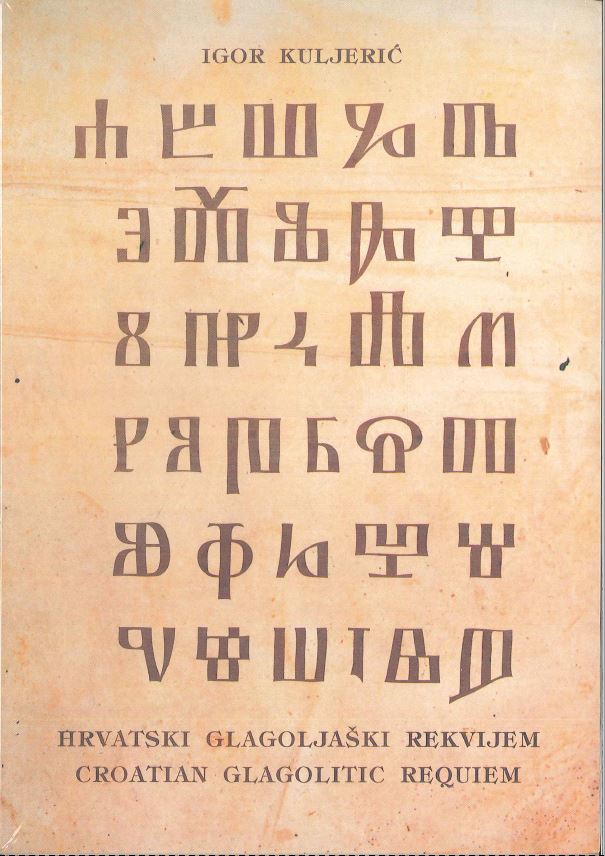 IGOR KULJERIĆ
Ⰰ Ⰱ Ⰲ Ⰳ Ⰴ
Ⰵ Ⰶ Ⰷ Ⰸ Ⰹ
Ⰻ Ⰼ Ⰽ Ⰾ Ⰿ
Ⱀ Ⱁ Ⱂ Ⱃ Ⱄ Ⱅ
Ⱆ Ⱇ Ⱈ Ⱉ Ⱋ
Ⱌ Ⱍ Ⱎ Ⱏ Ⱑ Ⱓ
HRVATSKI GLAGOLJAŠKI REKVIJEM
CROATIAN GLAGOLITIC REQUIEM